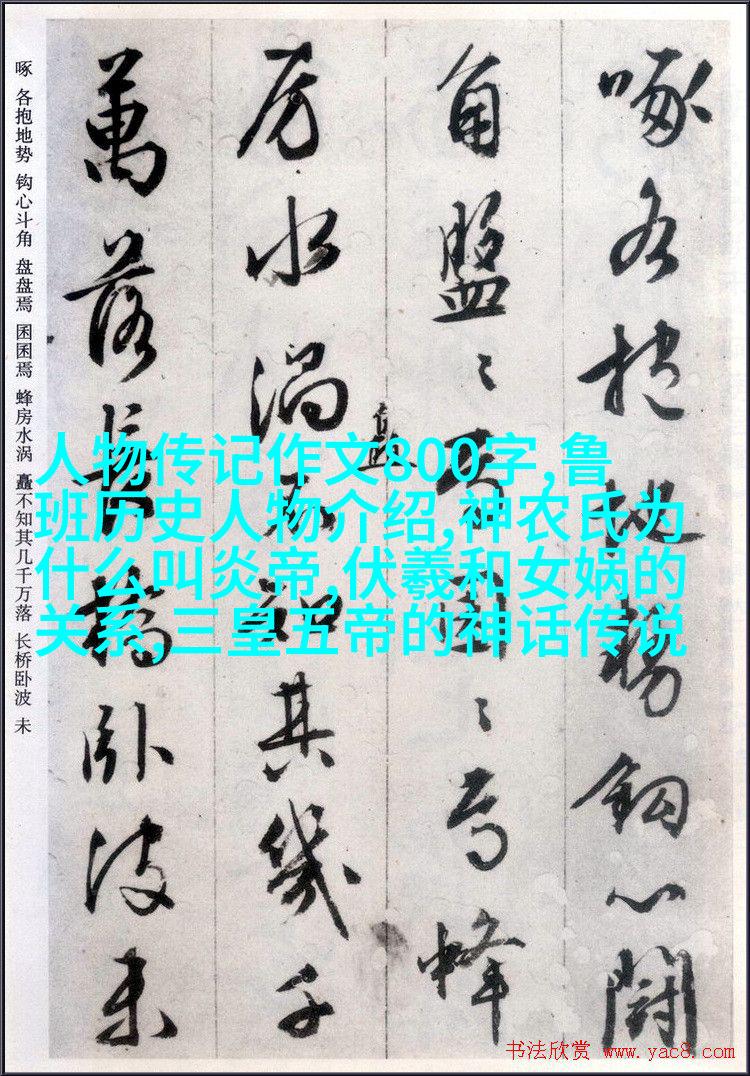 啄各抱地勢鈎心鬪
角盤〻焉囷〻焉蜂
房水渦矗不知其幾千
萬落長橋卧波未
啄 各抱地势 钩心斗角 盘盘焉 囷囷焉 蜂房水涡 矗不知其几千万落 长桥卧波 未
人物传记作文800字,鲁
班历史人物介绍,神农氏为
什么叫炎帝,伏羲和女娲的
关系,三皇五帝的神话传说
书法欣赏 www.yac8.com